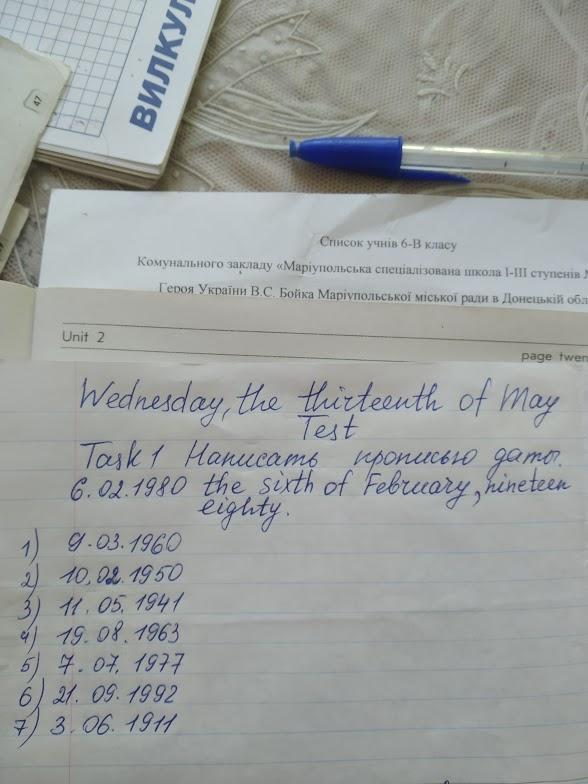 47
ВИЛКУЛ
Список учнів 6-В класу
Комунального закладу «Маріупольська спеціалізована школа І-ІІІ ступенів
Героя України В.С. Бойка Маріупольської міської ради в Донецькій обл
Unit 2
page twen
Wednesday, the thirteenth of May
Test
Task 1 Написать прописью даты.
6.02.1980 the sixth of February, nineteen
eighty.
1) 9.03.1960
2) 10.02.1950
3) 11.05.1941
4) 19.08.1963
5) 7.07.1977
6) 21.09.1992
7) 3.06.1911